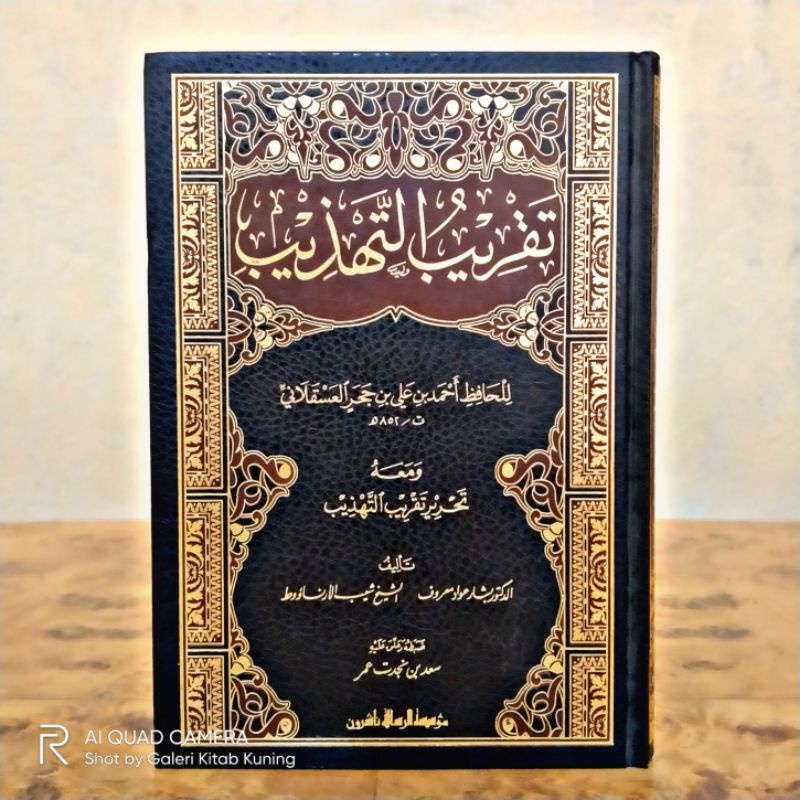 تَقْرِيْبُ التَّهْذِيْبِ
لِلْحَافِظِ أَحْمَد بن عَلي بن حَجَرٍ العَسْقَلَانيِّ
ت / ٨٥٢ هـ
وَمَعَهُ
تَحْرِيْر تَقْرِيْبِ التَّهْذِيْبِ
تَأْلِيْفُ
الدكتور بشار عواد معروف الشيخ شعيب الأرناؤوط
ضَبَطَهُ وَعَلَّقَ عَلَيْهِ
سعد بن نجدت عمر
مؤسسة الرسالة ناشرون
AI QUAD CAMERA
Shot by Galeri Kitab Kuning